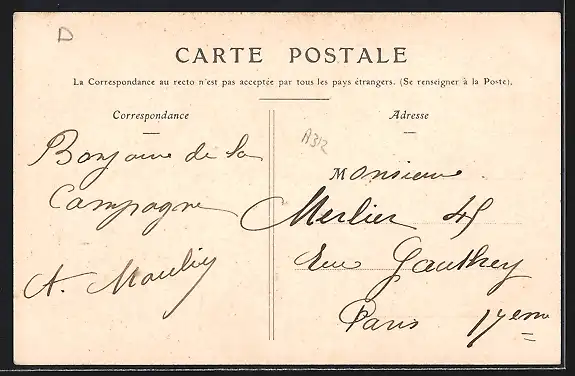 D
CARTE POSTALE
La Correspondance au recto n'est pas acceptée par tous les pays étrangers. (Se renseigner à la Poste).
Correspondance
Adresse
A312
Bonjour de la
Campagne
A. Moulin
Monsieur
Merlier 45
Rue Gauthey
Paris 17eme